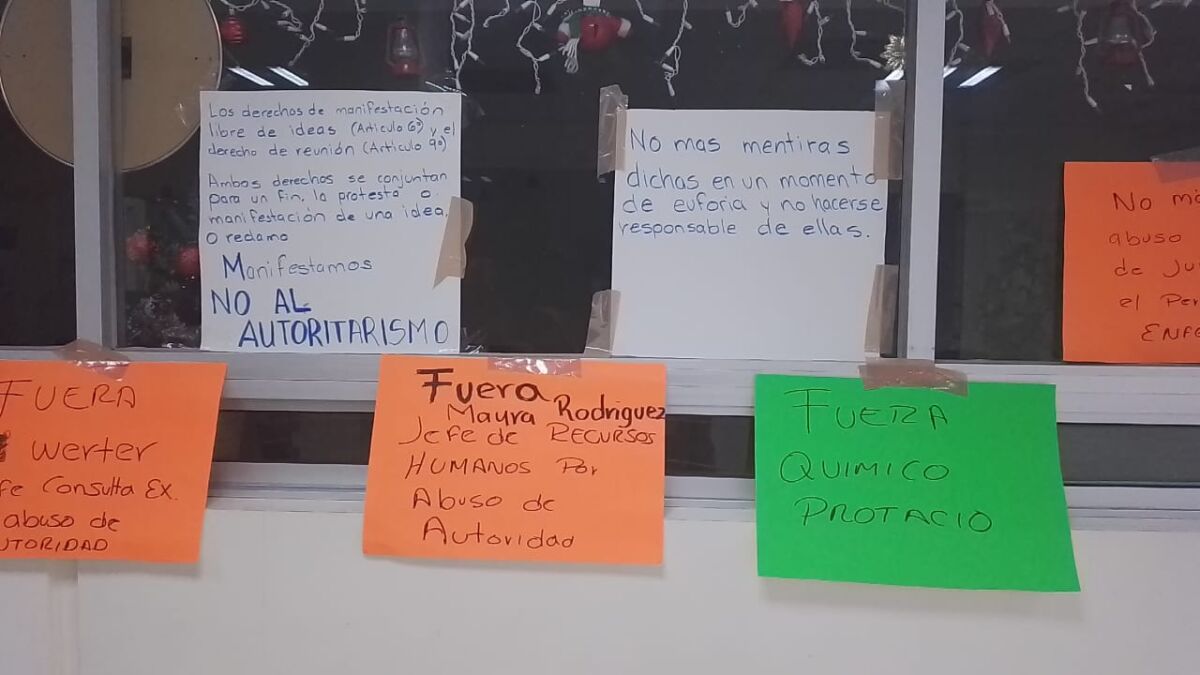 Los derechos de manifestación
libre de ideas (Articulo 6º) y el
derecho de reunión (Articulo 9º)
Ambos derechos se conjuntan
para un fin, la protesta o
manifestación de una idea,
o reclamo
Manifestamos
NO AL
AUTORITARISMO
No mas mentiras
dichas en un momento
de euforia y no hacerse
responsable de ellas.
No má
abuso
de Ju
el Per
ENFE
FUERA
werter
fe Consulta Ex.
abuso de
UTORIDAD
Fuera
Mayra Rodriguez
Jefe de RECURSOS
HUMANOS Por
Abuso de
Autoridad
FUERA
QUIMICO
PROTACIO